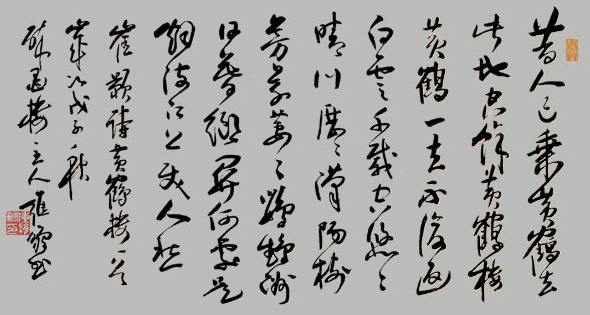 昔人已乘黄鶴去
此地空餘黄鶴樓
黄鶴一去不復返
白雲千載空悠々
晴川歷々漢陽樹
芳草萋々鸚鵡洲
日暮鄉關何處是
烟波江上使人愁
崔顥詩黄鶴樓一首
歲次戊子秋
樓主人張書